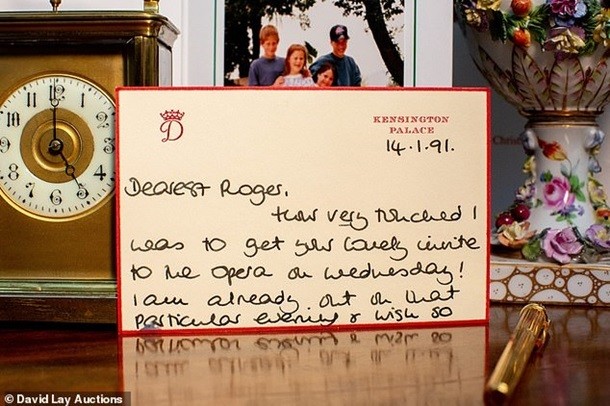 D
KENSINGTON
PALACE
14.1.91.
Dearest Roger,
How very touched I
was to get your lovely invite
to the opera on Wednesday!
I am already out on that
particular evening & wish so
12 1 2 3 4 5 6 7 8 9 10 11
Chris
© David Lay Auctions